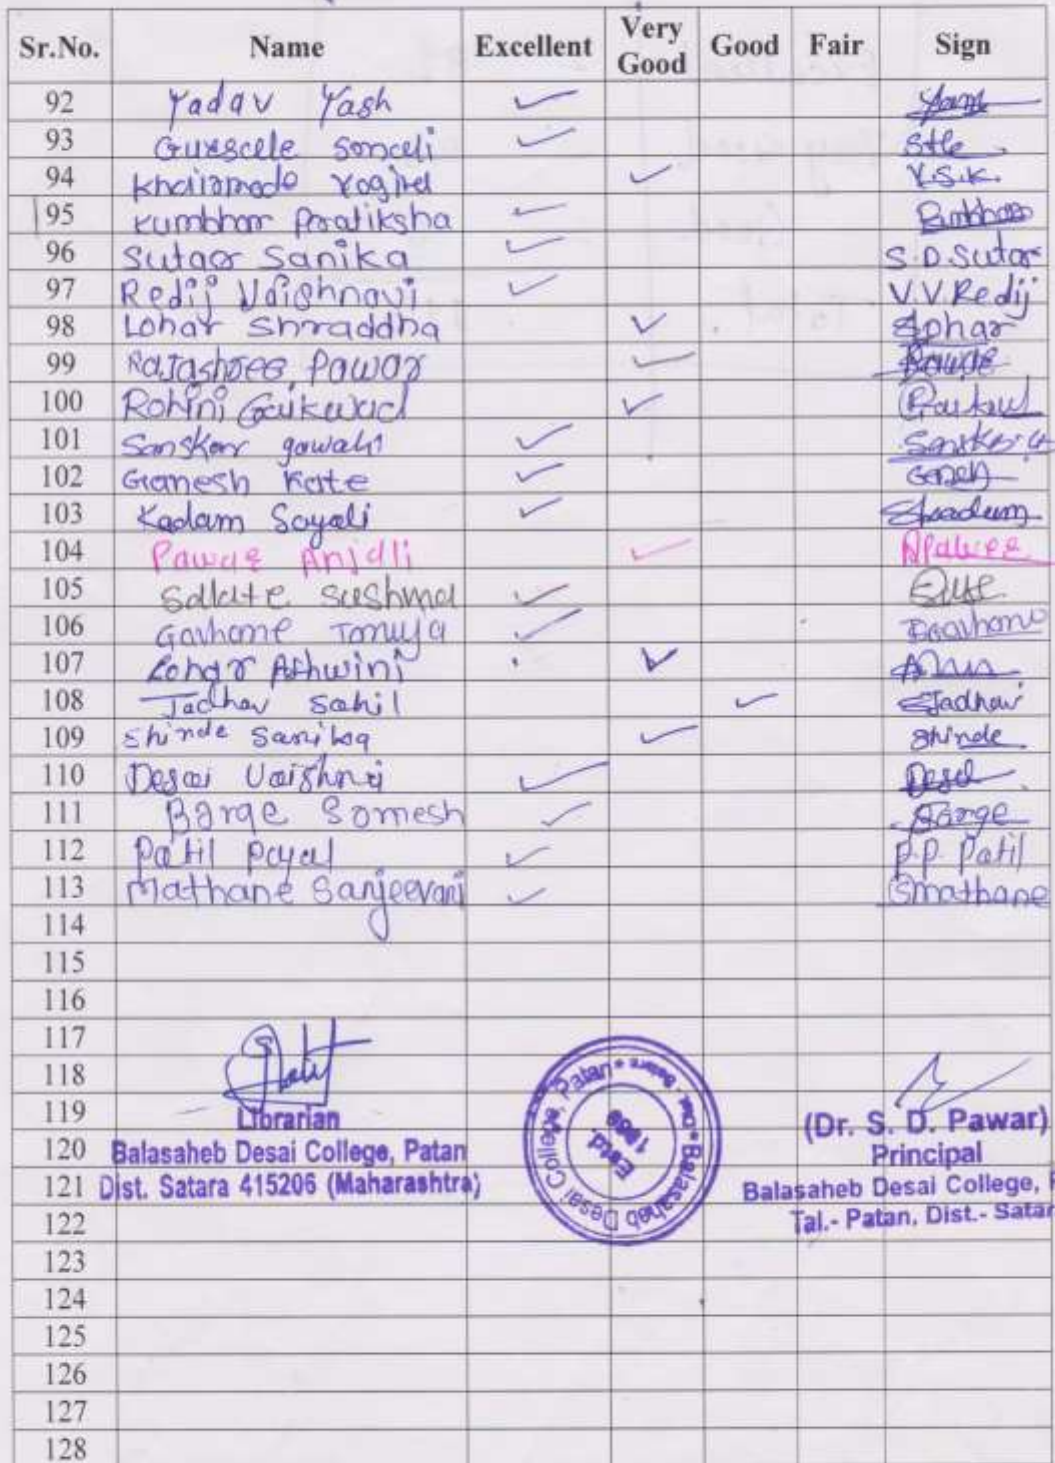 Sr.No. Name Excellent Very Good Good Fair Sign
92 Yadav Yash
93 Gurscele Sonceli Stle
94 Khairmode Yogita Y.S.K.
95 Kumbhar Pratiksha Kumbhar
96 Sutaar Sanika S.D.Sutar
97 Redij Vaishnavi V.V.Redij
98 Lohar Shraddha Slohar
99 Rajashree Pawar Pawar
100 Rohini Gaikwad
101 Sanskar gawali Sanskar.G
102 Ganesh Kate Ganesh
103 Kadam Sayali
104 Pawar Anjali APawar
105 Sallate Sushma
106 Gavhane Tanuja
107 Lohar Ashwini
108 Jadhav Sahil SJadhav
109 Shinde Sanika Shinde
110 Desai Vaishnvi Desai
111 Barge Somesh Barge
112 Patil Payal P.P. Patil
113 Mathane Sanjeevani Smathane
114
115
116
117
118
119 Librarian (Dr. S. D. Pawar)
120 Balasaheb Desai College, Patan Principal
121 Dist. Satara 415206 (Maharashtra) Balasaheb Desai College,
122 Tal.- Patan, Dist.- Satar
Balasaheb Desai College, Patan * Dist. Satara *
Estd. 1969
123
124
125
126
127
128